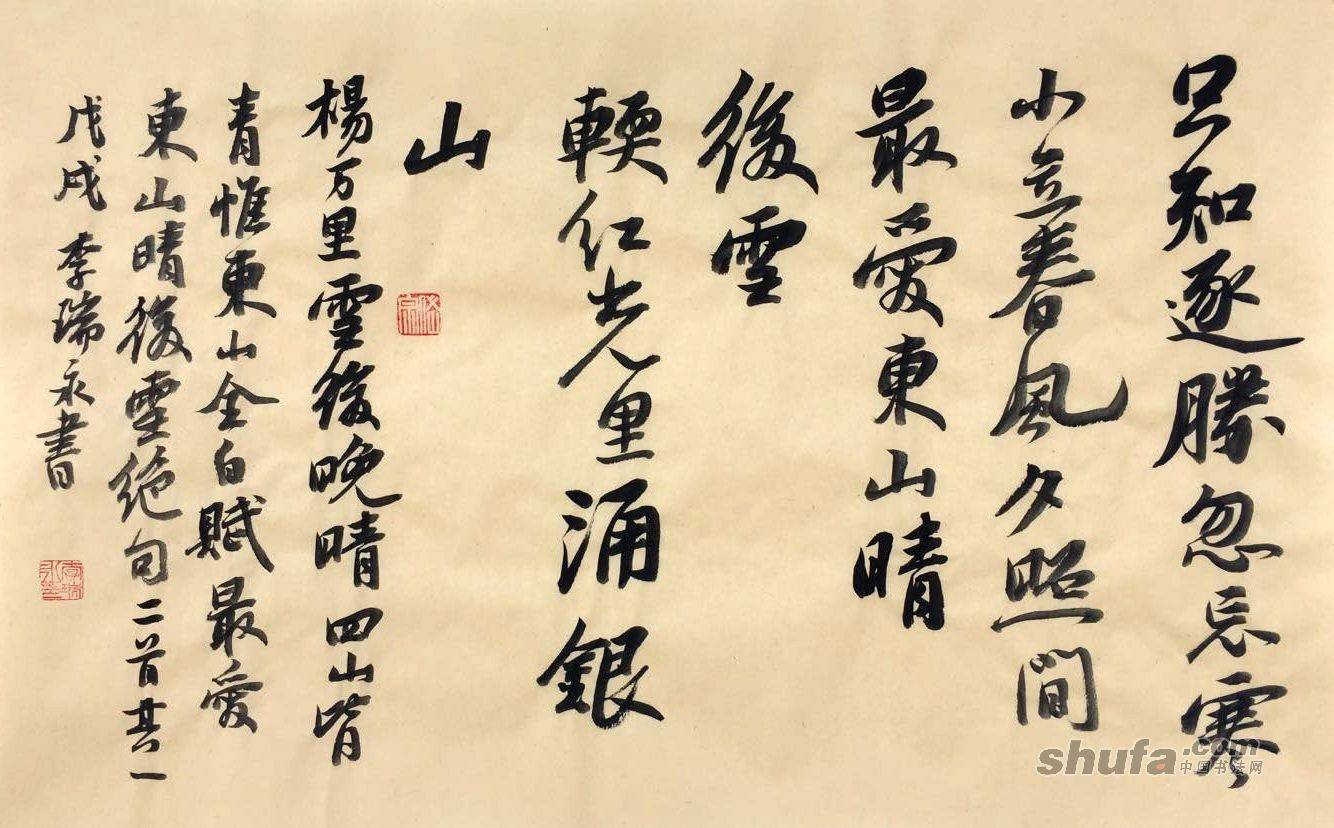 只知逐勝忽忘寒
小立春風夕照間
最愛東山晴
後雪
軟红光里涌銀
山
楊万里雪後晚晴四山皆
青惟東山全白賦最愛
東山晴後雪绝句二首其一
戊戌李瑞永書
李瑞永印
shufa.com
中国书法网